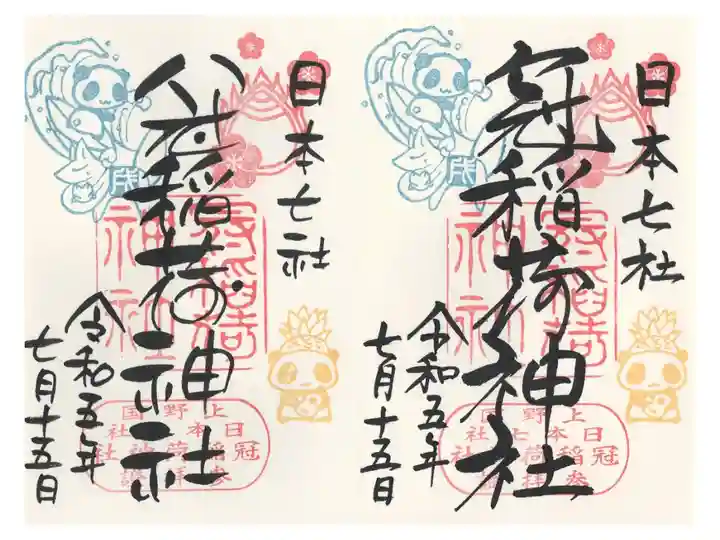 日本七社
冠稲荷神社
令和五年
七月十五日
上野国
日本七社
冠稲荷神社
日本七社
稲荷神社
令和五年
七月十五日
上野国
日本
冠稲荷神社